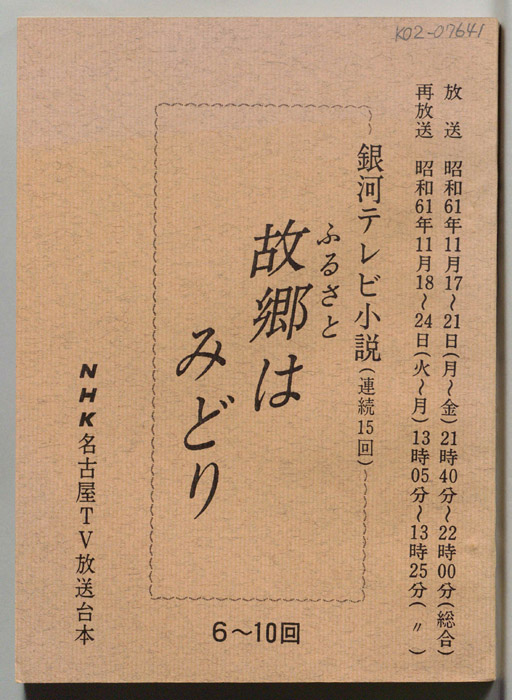 K02-07641
放送 昭和61年11月17〜21日(月〜金)21時40分〜22時00分(総合)
再放送 昭和61年11月18〜24日(火〜月)13時05分〜13時25分(〃)
銀河テレビ小説(連続15回)
ふるさと
故郷は
みどり
NHK名古屋TV放送台本
6〜10回